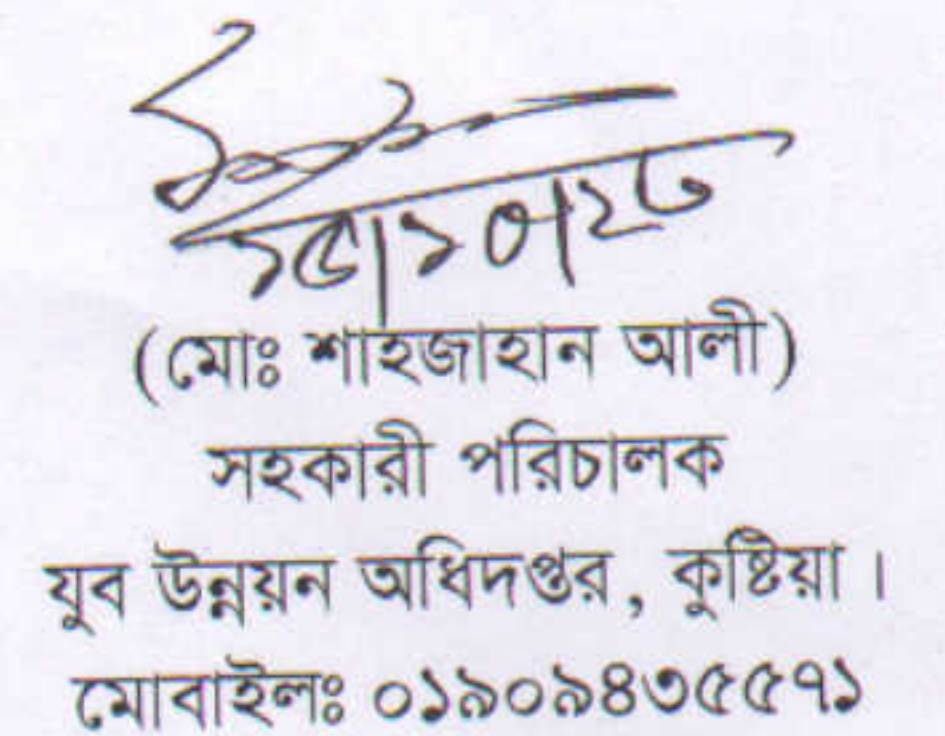 ১৫|১০|২৩
(মোঃ শাহজাহান আলী)
সহকারী পরিচালক
যুব উন্নয়ন অধিদপ্তর, কুষ্টিয়া।
মোবাইলঃ ০১৯০৯৪৩৫৫৭১